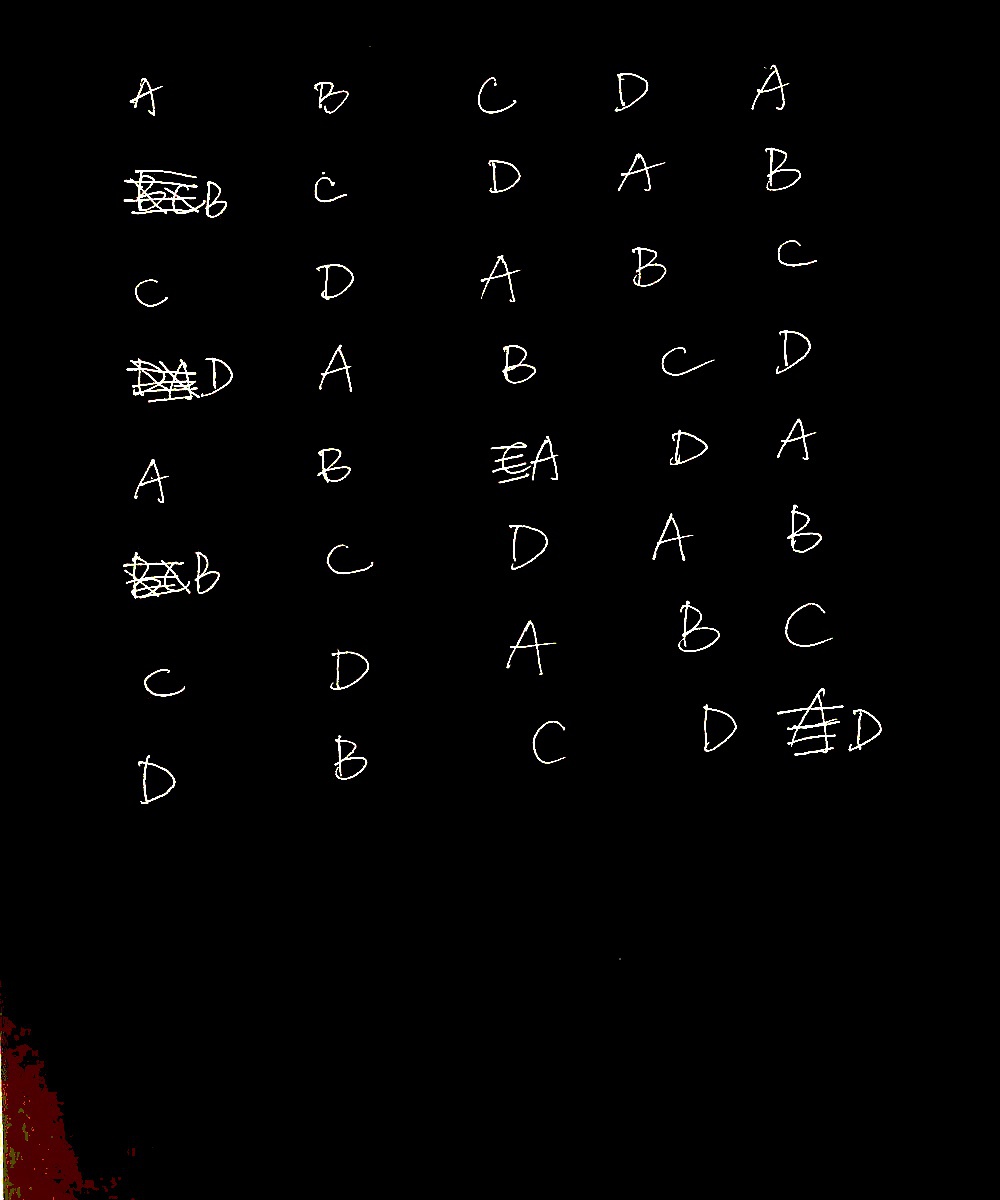 A B C D A
B C D A B
C D A B C
D A B C D
A B A D A
B C D A B
C D A B C
D B C D D